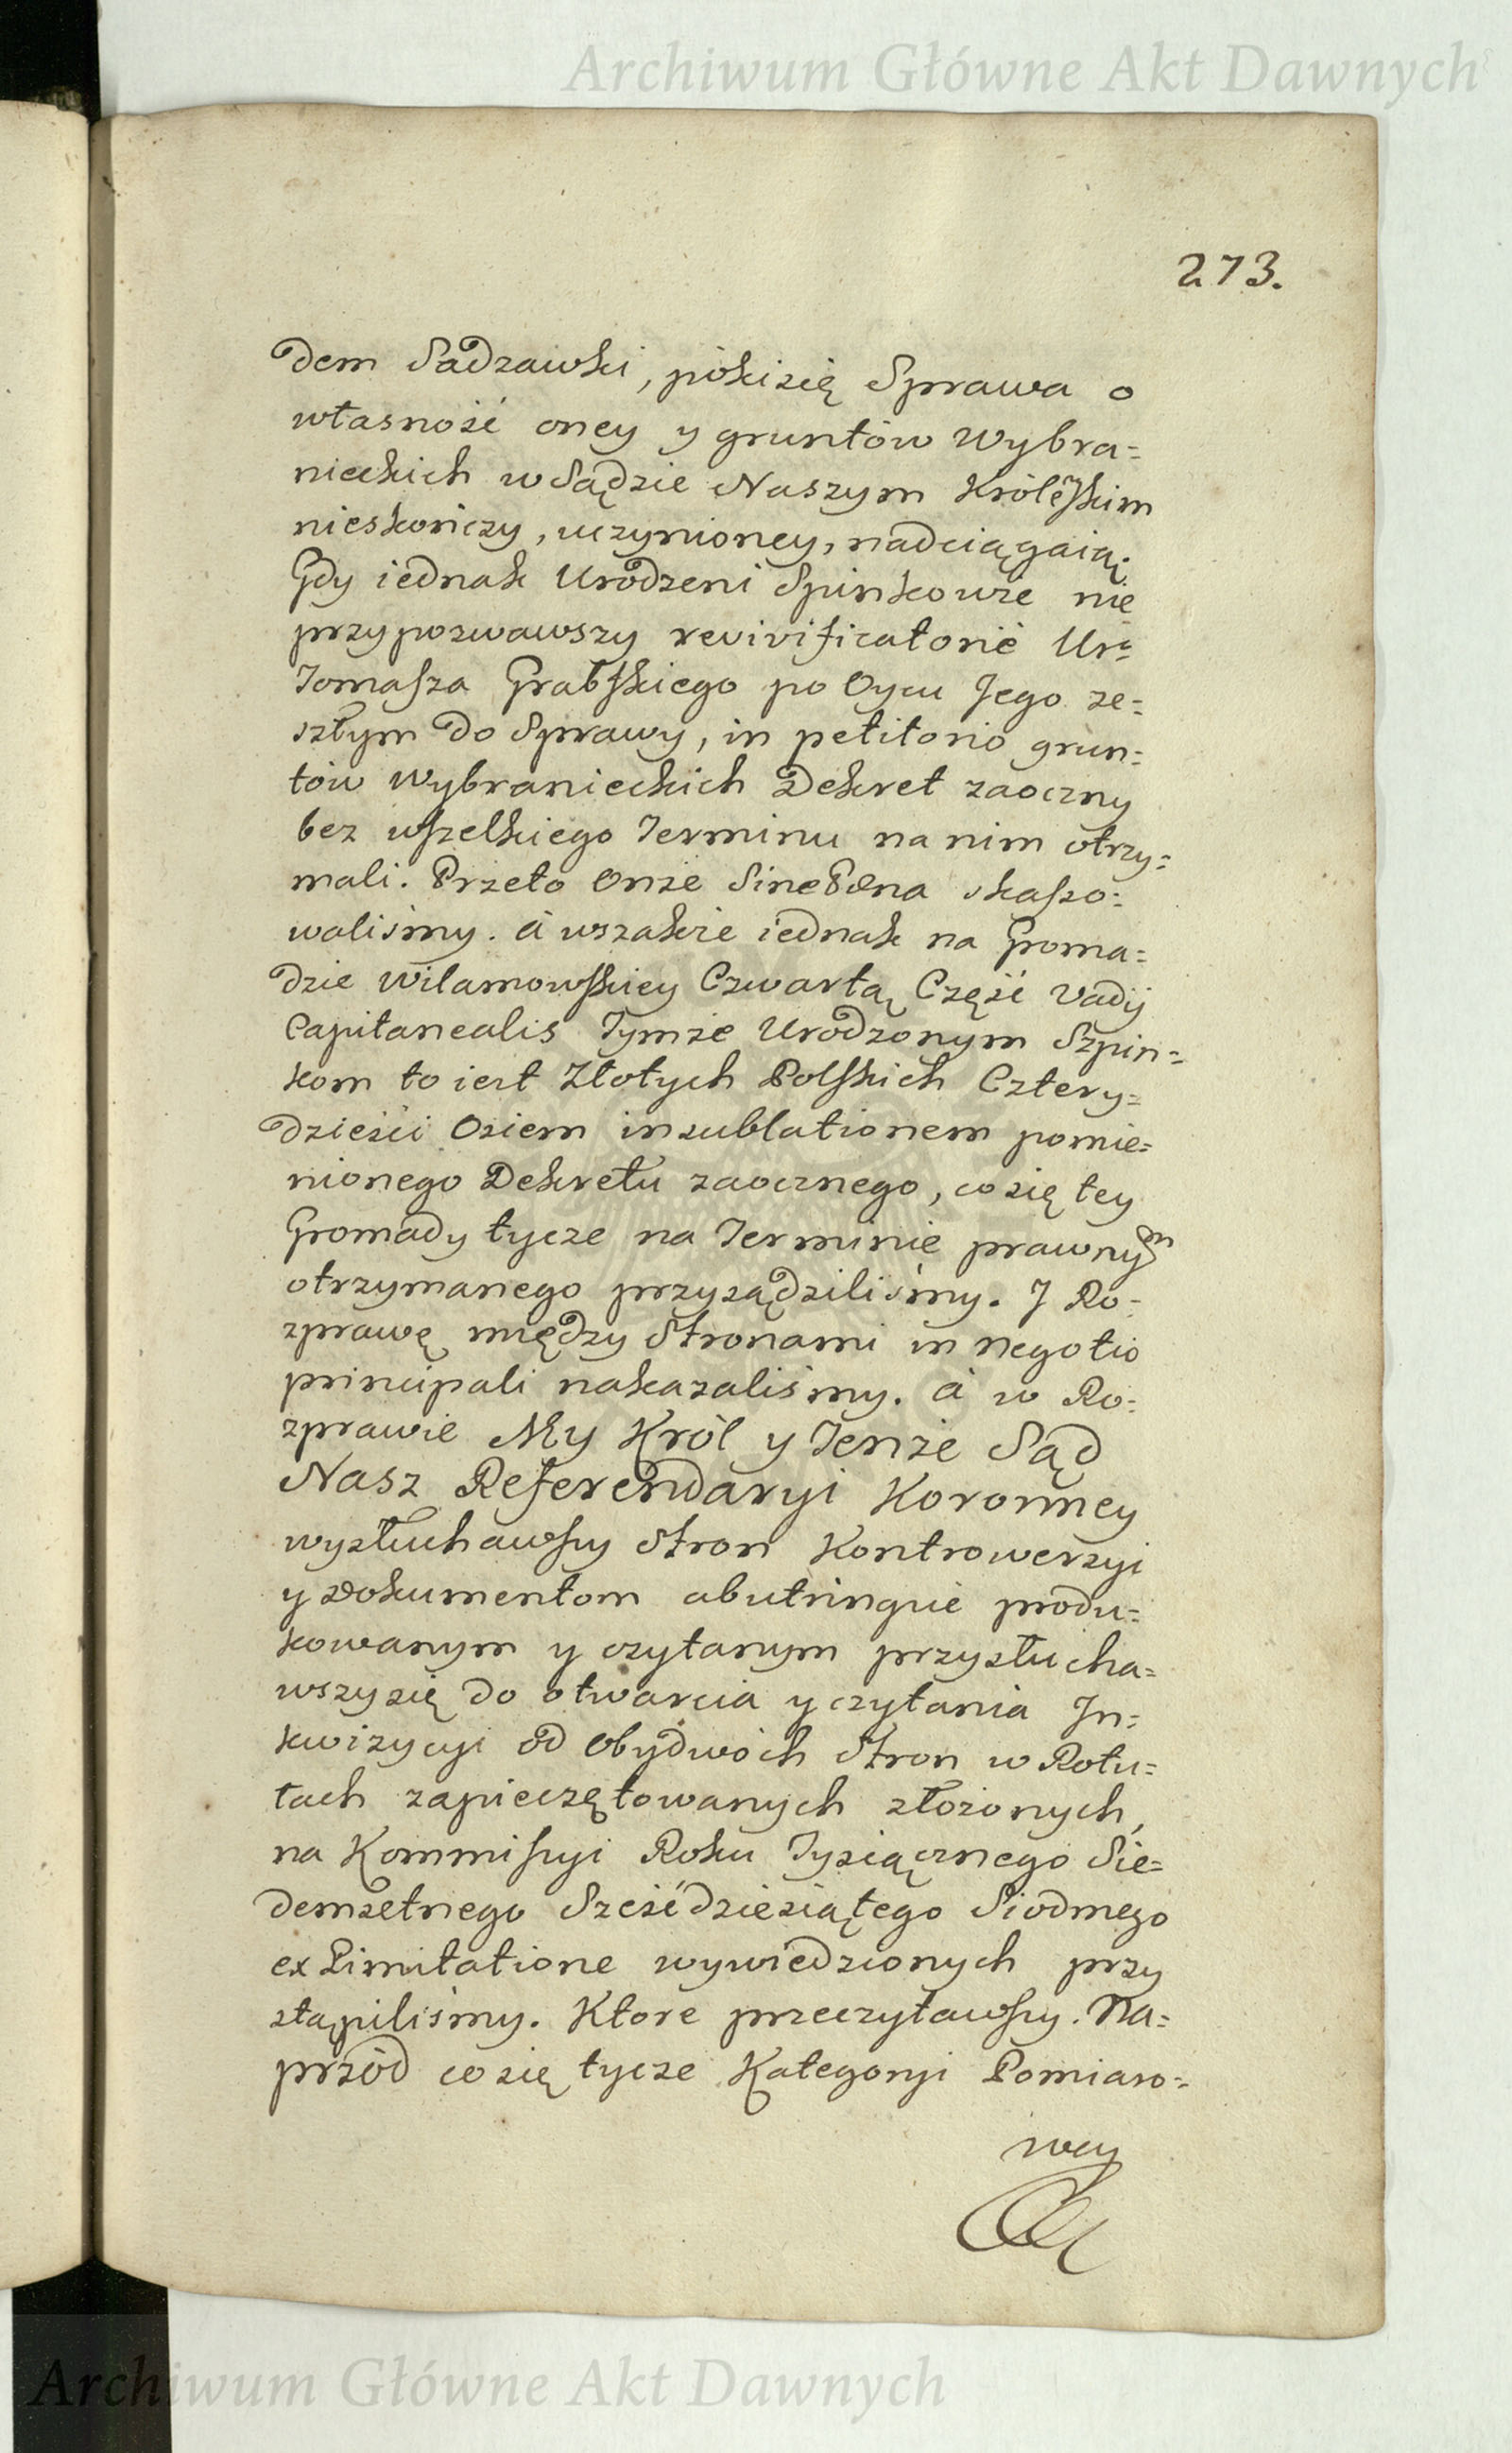 Archiwum Główne Akt Dawnych
273.
dem Sadzawki, póki się Sprawa o
własność oney y gruntów Wybra=
nieckich w Sądzie Naszym Królewskim
nieskończy, uczynioney, nadciągaią.
Gdy iednak Urodzeni Spinkowie nie
przypozwawszy revivificatorie Ur:
Tomasza Grabskiego po Oycu Jego ze=
szłym do Sprawy, in petitorio grun=
tów Wybranieckich Dekret zaoczny
bez wszelkiego Terminu na nim otrzy=
mali. Przeto Onże Sine Pœna skasso=
waliśmy. á wszakże iednak na Groma=
dzie Wilamowskiey Czwartą Część Vadij
Capitanealis Tymże Urodzonym Szpin=
kom to iest Złotych Polskich Cztery=
dzieści Osiem in sublationem pomie=
nionego Dekretu zaocznego, co się tey
Gromady tycze na Terminie prawnym
otrzymanego przysądziliśmy. J Ro=
zprawę między Stronami in negotio
principali nakazaliśmy. á w Ro=
zprawie My Król y Tenże Sąd
Nasz Referendaryi Koronney
wysłuchawszy Stron Kontrowerzyi
y Dokumentom abutrinque produ=
kowanym y czytanym przysłucha=
wszy się do otwarcia y czytania In=
kwizycyi od Obydwóch Stron w Rotu=
łach zapieczętowanych złożonych,
na Kommissyi Roku Tysiącznego Sie=
demsetnego Sześćdziesiątego Siodmego
ex Limitatione wywiedzionych przy
stąpiliśmy. Ktore przeczytawszy. Na=
przód co się tycze Kategoryi Pomiaro=
wey
Archiwum Główne Akt Dawnych